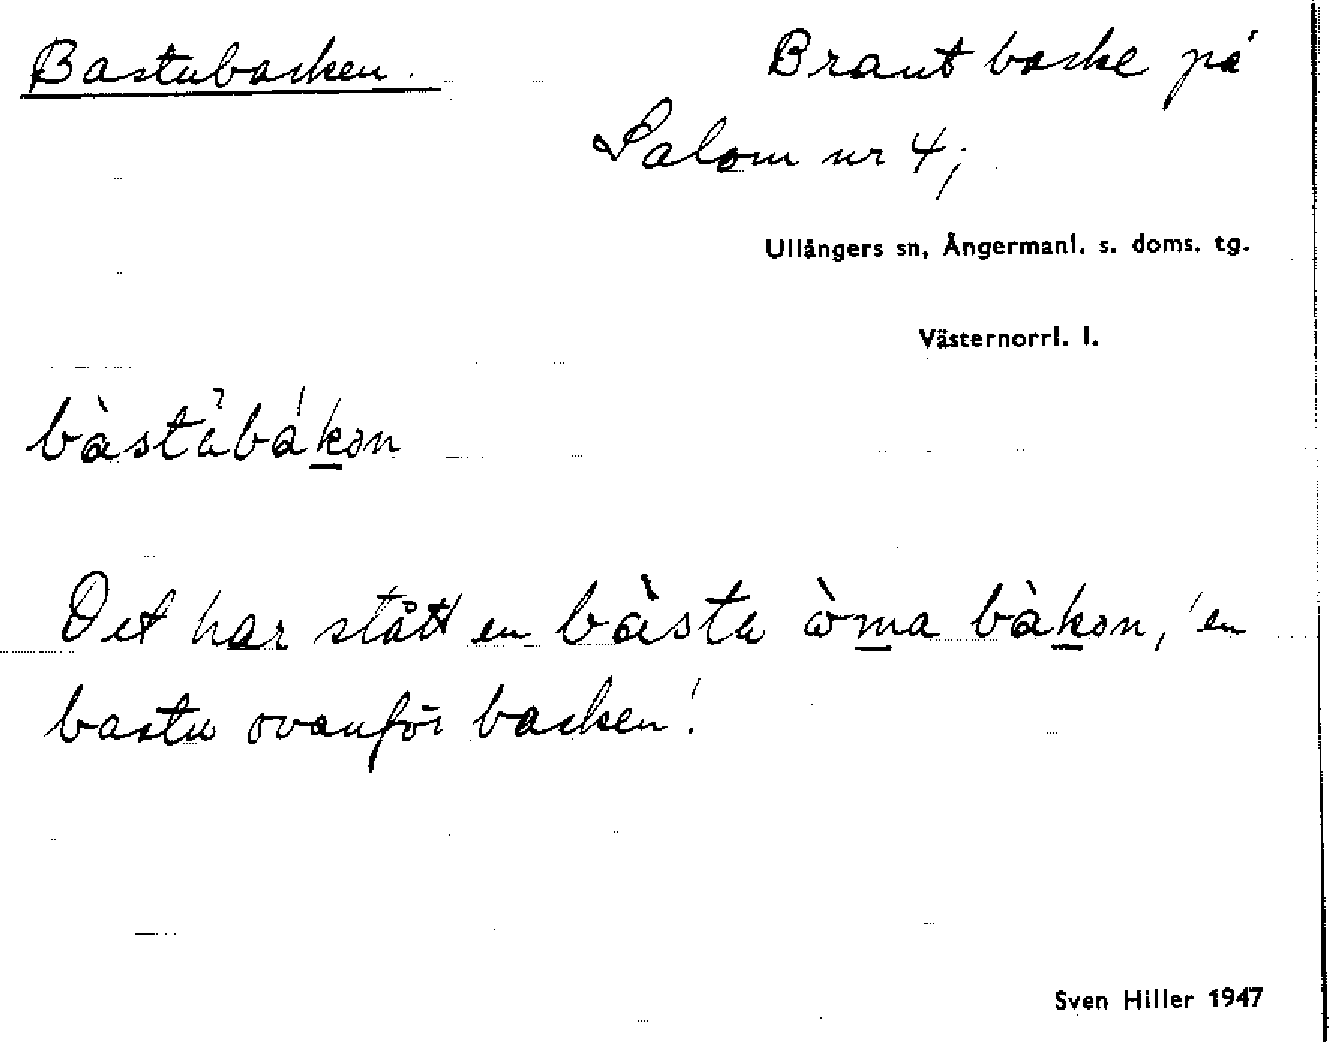 Bastubacken. Brant backe på
Salom nr 4;
Ullångers sn, Ångermanl. s. doms. tg.
Västernorrl. l.
bàstábákon
Det har stått en bàsta òma bàkon, 'en
bastu ovanför backen'.
Sven Hiller 1947